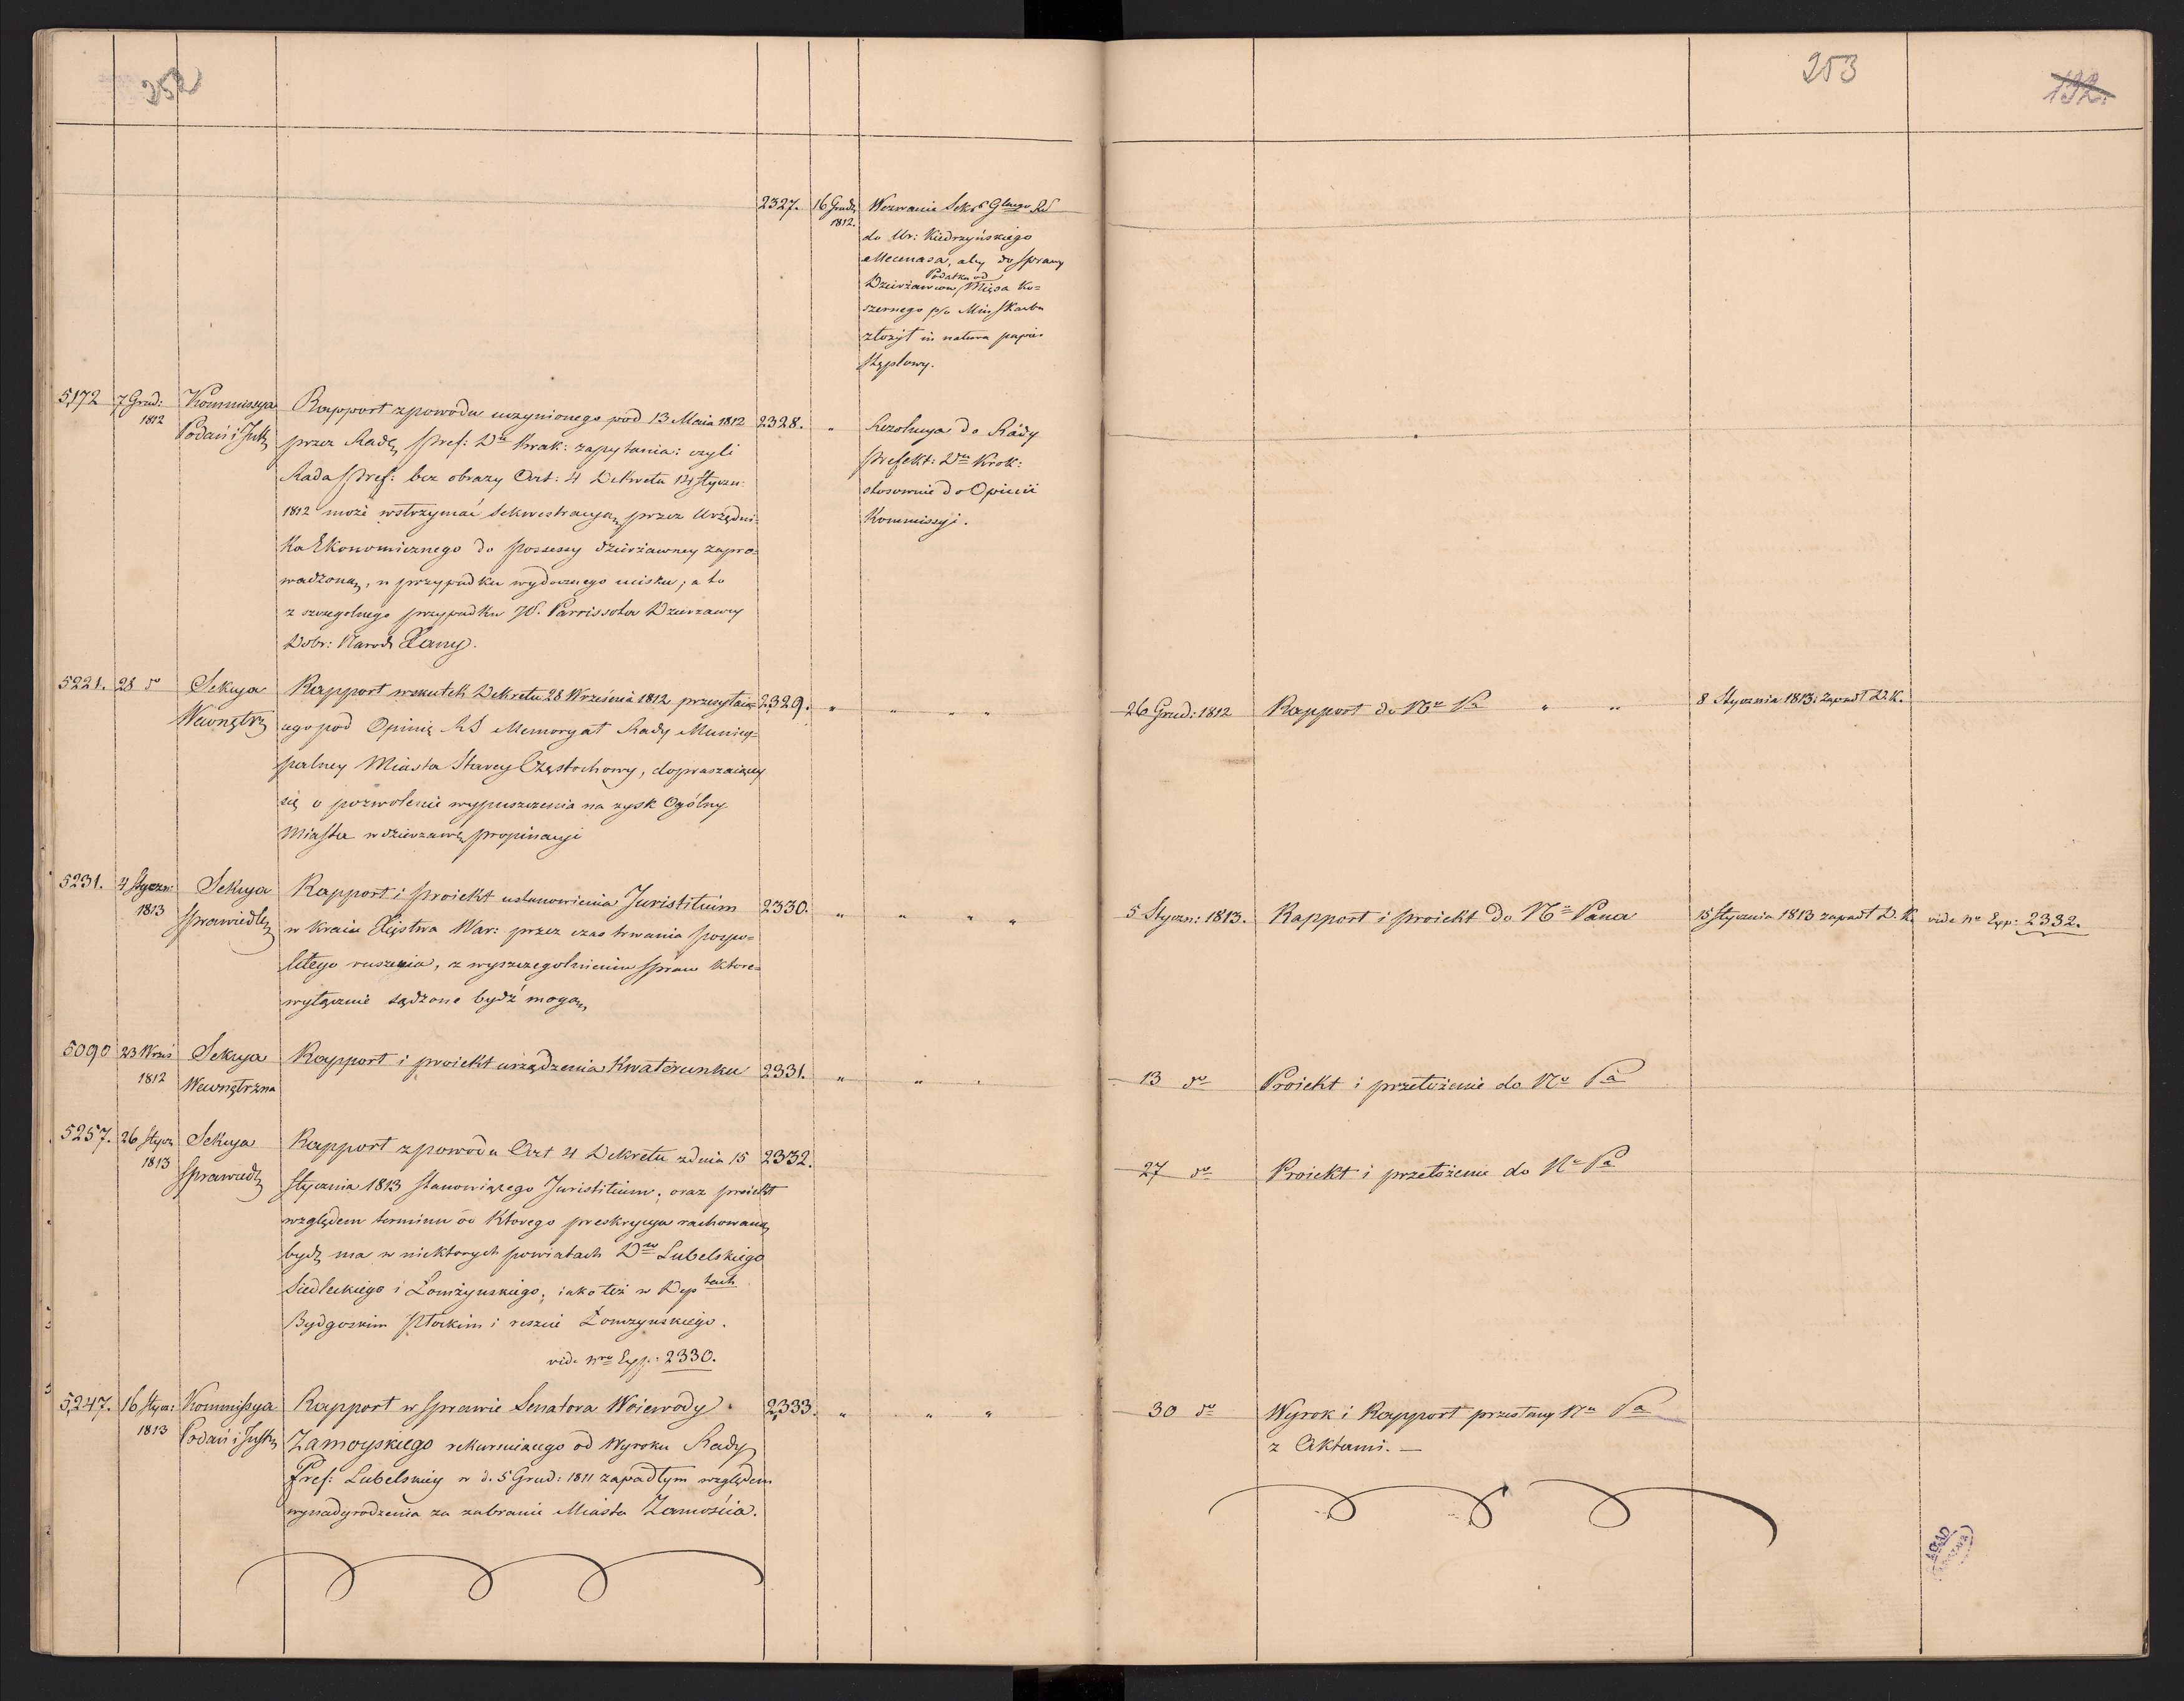 252
253
192.
2327. 16 Grudz 1812. Wezwanie Sekr Glnego RS
do Ur: Kiedrzyńskiego
Mecenasa, aby do sprawy
Podatku od
Dzierżawców Mięsa Ko=
szernego p/o Min Skarbu
złożył in natura papier
stęplowy.
5,172 7 Grud: 1812 Kommissya Podań i Inst
Rapport zpowodu uczynionego pod 13 Maia 1812
przez Radę Pref: Dtu Krak: zapytania: czyli
Rada Pref: bez obrazy Art: 4 Dekretu 14 Styczn:
1812 może wstrzymać sekwestracyą przez Urzędni=
ka Ekonomicznego do possessy dzierżawney zapro=
wadzoną, w przypadku wydocznego ucisku; a to
z szczegolnego przypadku JP. Parrissota Dzierzawcy
Dobr: Narod: Łany.
2328. " Rezolucya do Rady
Prefekt: Dtu Krak:
stosownie do Opinii
Kommissyi.
5221. 28 do Sekcya Wewnętrz
Rapport wskutek Dekretu 28 Września 1812 przesyłaią=
cego pod Opinię RS Memoryał Rady Municy=
palney Miasta Starey Częstochowy, dopraszaiącey
się o pozwolenie wypuszczenia na zysk Ogólny
Miasta w dzierzawę propinacyi
2329. " " " "
26 Grud: 1812 Rapport do No Pa " " 8 Stycznia 1813: zapadł D.K.
5231. 4 Styczn: 1813 Sekcya Sprawiedl
Rapport i proiekt ustanowienia Juristitium
w kraiu Xięstwa War: przez czas trwania pospo=
litego ruszenia, z wyszczegolnieniem spraw ktore
wyłącznie sądzone bydź mogą
2330. " " " "
5 Styczn: 1813. Rapport i proiekt do No Pana 15 Stycznia 1813 zapadł D.K. vide No Exp: 2332.
5090 23 Wrześ 1812 Sekcya Wewnętrzna
Rapport i proiekt urządzenia Kwaterunku
2331. " " "
13 do Proiekt i przełożenie do No Pa
5257. 26 Stycz 1813 Sekcya Sprawiedl
Rapport zpowodu Art 4 Dekretu zdnia 15
Stycznia 1813 stanowiącego Juristitium; oraz proiekt
względem terminu od ktorego preskrypcya rachowaną
bydz ma w niektorych powiatach Dtw Lubelskiego
Siedleckiego i Łomżyńskiego; iako też w Deptach
Bydgoskim Płockim i reszcie Łomzynskiego.
vide Nro Exp: 2330.
2332.
27 do Proiekt i przełożenie do No Pa
5,247. 16 Stycz: 1813 Kommissya Podań i Inst
Rapport w sprawie Senatora Woiewody
Zamoyskiego rekursuiącego od Wyroku Rady
Pref: Lubelskiey w d. 5 Grud: 1811 zapadłym względem
wynadgrodzenia za zabranie Miasta Zamościa.
2333. " " "
30 do Wyrok i Rapport przesłany No Pa
z Aktami. —
AGAD